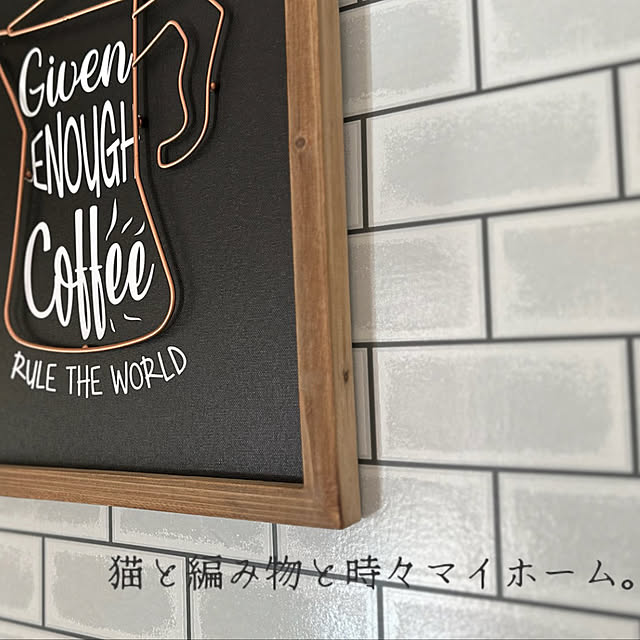 Given
ENOUGH
Coffee
RULE THE WORLD
猫と編み物と時々マイホーム。